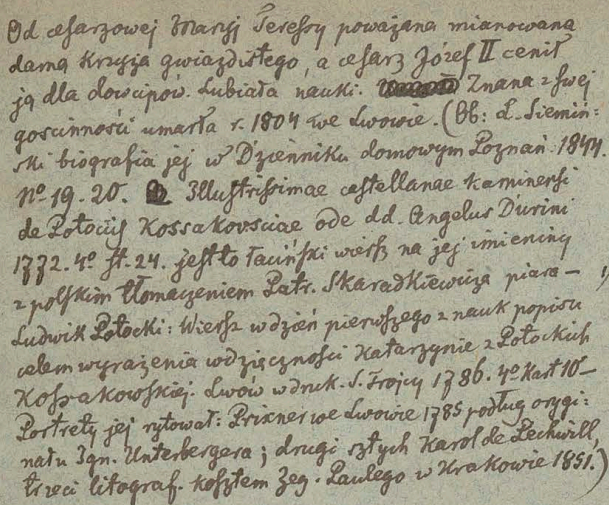 Od cesarzowej Maryi Teressy poważana mianowana
damą krzyża gwiazdistego, a cesarz Józef II cenił
ją dla dowcipów. Lubiała nauki. Znana z swej
gościnności umarła r. 1804 we Lwowie. (Ob: Ł. Siemiń-
ski biografia jej w Dzienniku domowym Poznań 1844.
No 19-20. Illustrissimae castellanae Kaminensi
de Potocus Kossakovsciae ode dd. Angelus Durini
1772. 4o st. 24. jest to łaciński wiersz na jej imieniny
z polskim tłomaczeniem Patr. Skaradkiewicza piara —
Ludwik Potocki: Wiersz w dzień pierwszego z nauk popisu
celem wyrażenia wdzięczności Katarzynie z Potockich
Kossakowskiej. Lwów w druk. S. Trojcy 1786. 4o Kart 10 —
Portrety jej rytował: Prixner we Lwowie 1785 podług orygi:
nału Ign. Unterbergera; drugi sztych Karol de Pechwill,
trzeci litograf. kosztem Żeg. Paulego w Krakowie 1851.)